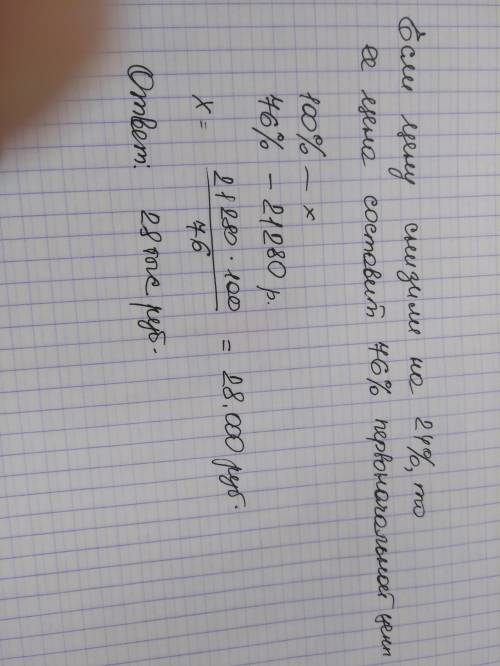 Если цену снизили на 24%, то
ее цена составит 76% первоначальной цены
100% — x
76% — 21280 р.
x = 21280 · 100 / 76 = 28.000 руб.
Ответ: 28 тыс руб.